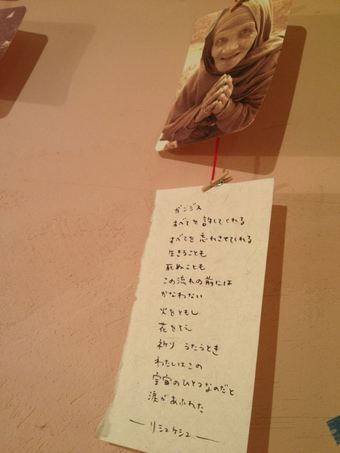 ガンジス
すべてを 許してくれる
すべてを 忘れさせてくれる
生きることも
死ぬことも
この流れの前には
かなわない
火をともし
花をそえ
祈り うたうとき
わたしはこの
宇宙のひとつなのだと
涙があふれた
— リシュケシュ —